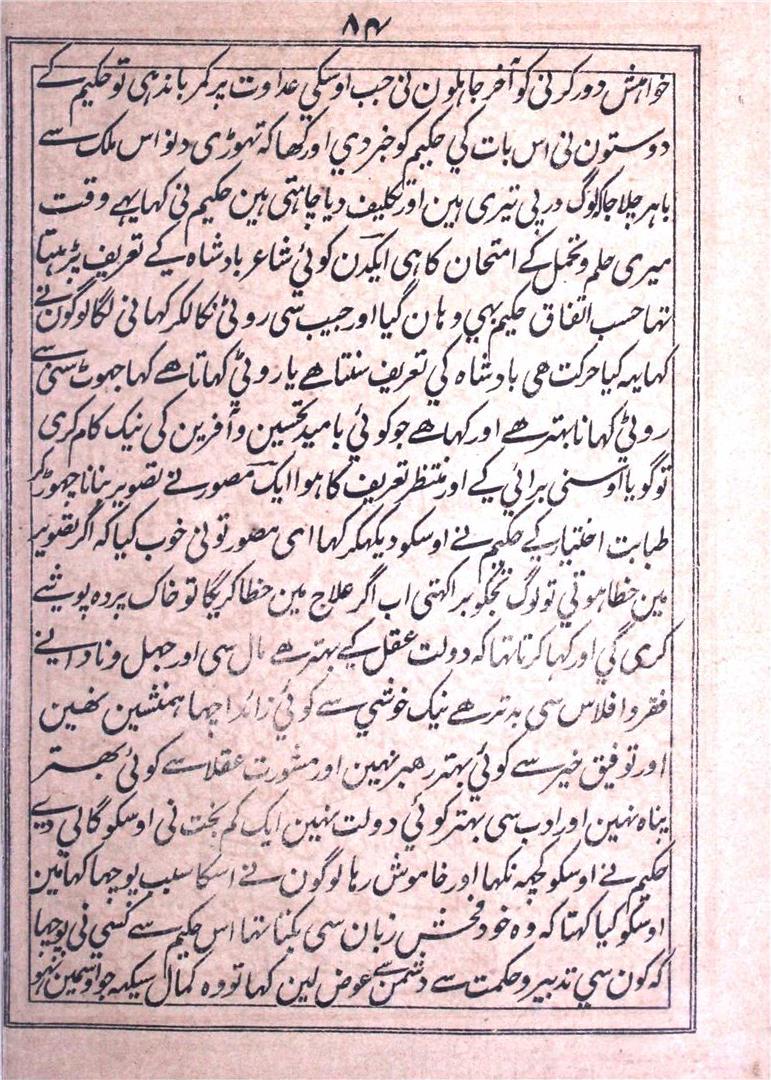 ۸۴
خواہش دور کرنی کو آخر جاہلون نی جب اوسکي عداوت پر کمر باندہی تو حکیم کے
دوستون نی اس بات کي حکیم کو خبر دي اور کہا کہ تہوڑی دلو اس ملک سے
باہر چلا جا کہ لوگ در پی تیری ہین اور تکلیف دیا چاہتی ہین حکیم نی کہا یہے وقت
میری حلم و تحمل کے امتحان کا ہی ایکدن کوئي شاعر بادشاہ کے تعریف پڑہتا
تہا حسب اتفاق حکیم بہي وہان گیا اور جیب سی روٹی نکالکر کہانی لگا لوگون نے
کہا یہہ کیا حرکت ھی بادشاہ کي تعریف سنتا ھے یا روٹي کہاتا ھے کہا جہوٹ سنی سے
روٹي کہانا بہتر ھے اور کہا ھے جو کوئي بامید تحسین و آفرین کی نیک کام کری
تو گویا اوسنی برائي کے اور منتظر تعریف کا ہوا ایک مصور نے تصویر بنانا چہوڑ کر
طبابت اختیار کے حکیم نے اوسکو دیکہکر کہا اے مصور تونی خوب کیا کہ اگر تصویر
مین خطا ہوتي تو لوگ تجکو برا کہتی اب اگر علاج مین خطا کریگا تو خاک پردہ پوشے
کری گي اور کہا کرتا تہا کہ دولت عقل کے بہتر ھے مال سی اور جہل و نادانے
فقر و افلاس سی بدتر ھے نیک خوشي سے کوئي زائد اچہا ہمنشین نھین
اور توفیق خیر سے کوئي بہتر رھبر نہین اور مشورت عقلا سے کوئي بھتر
پناہ نہین اور ادب سی بہتر کوئي دولت نہین ایک کم بخت نی اوسکو گالي دے
حکیم نے اوسکو کچہہ نکہا اور خاموش رہا لوگون نے اسکا سبب پوچہا کہا مین
اوسکو کیا کہتا کہ وہ خود فحش زبان سی بکتا تہا اس حکیم سے کسي نی پوچہا
کہ کون سي تدبیر و حکمت سے دشمن سے عوض لین کہا تو وہ کمال سیکہہ جو اسمین نہو